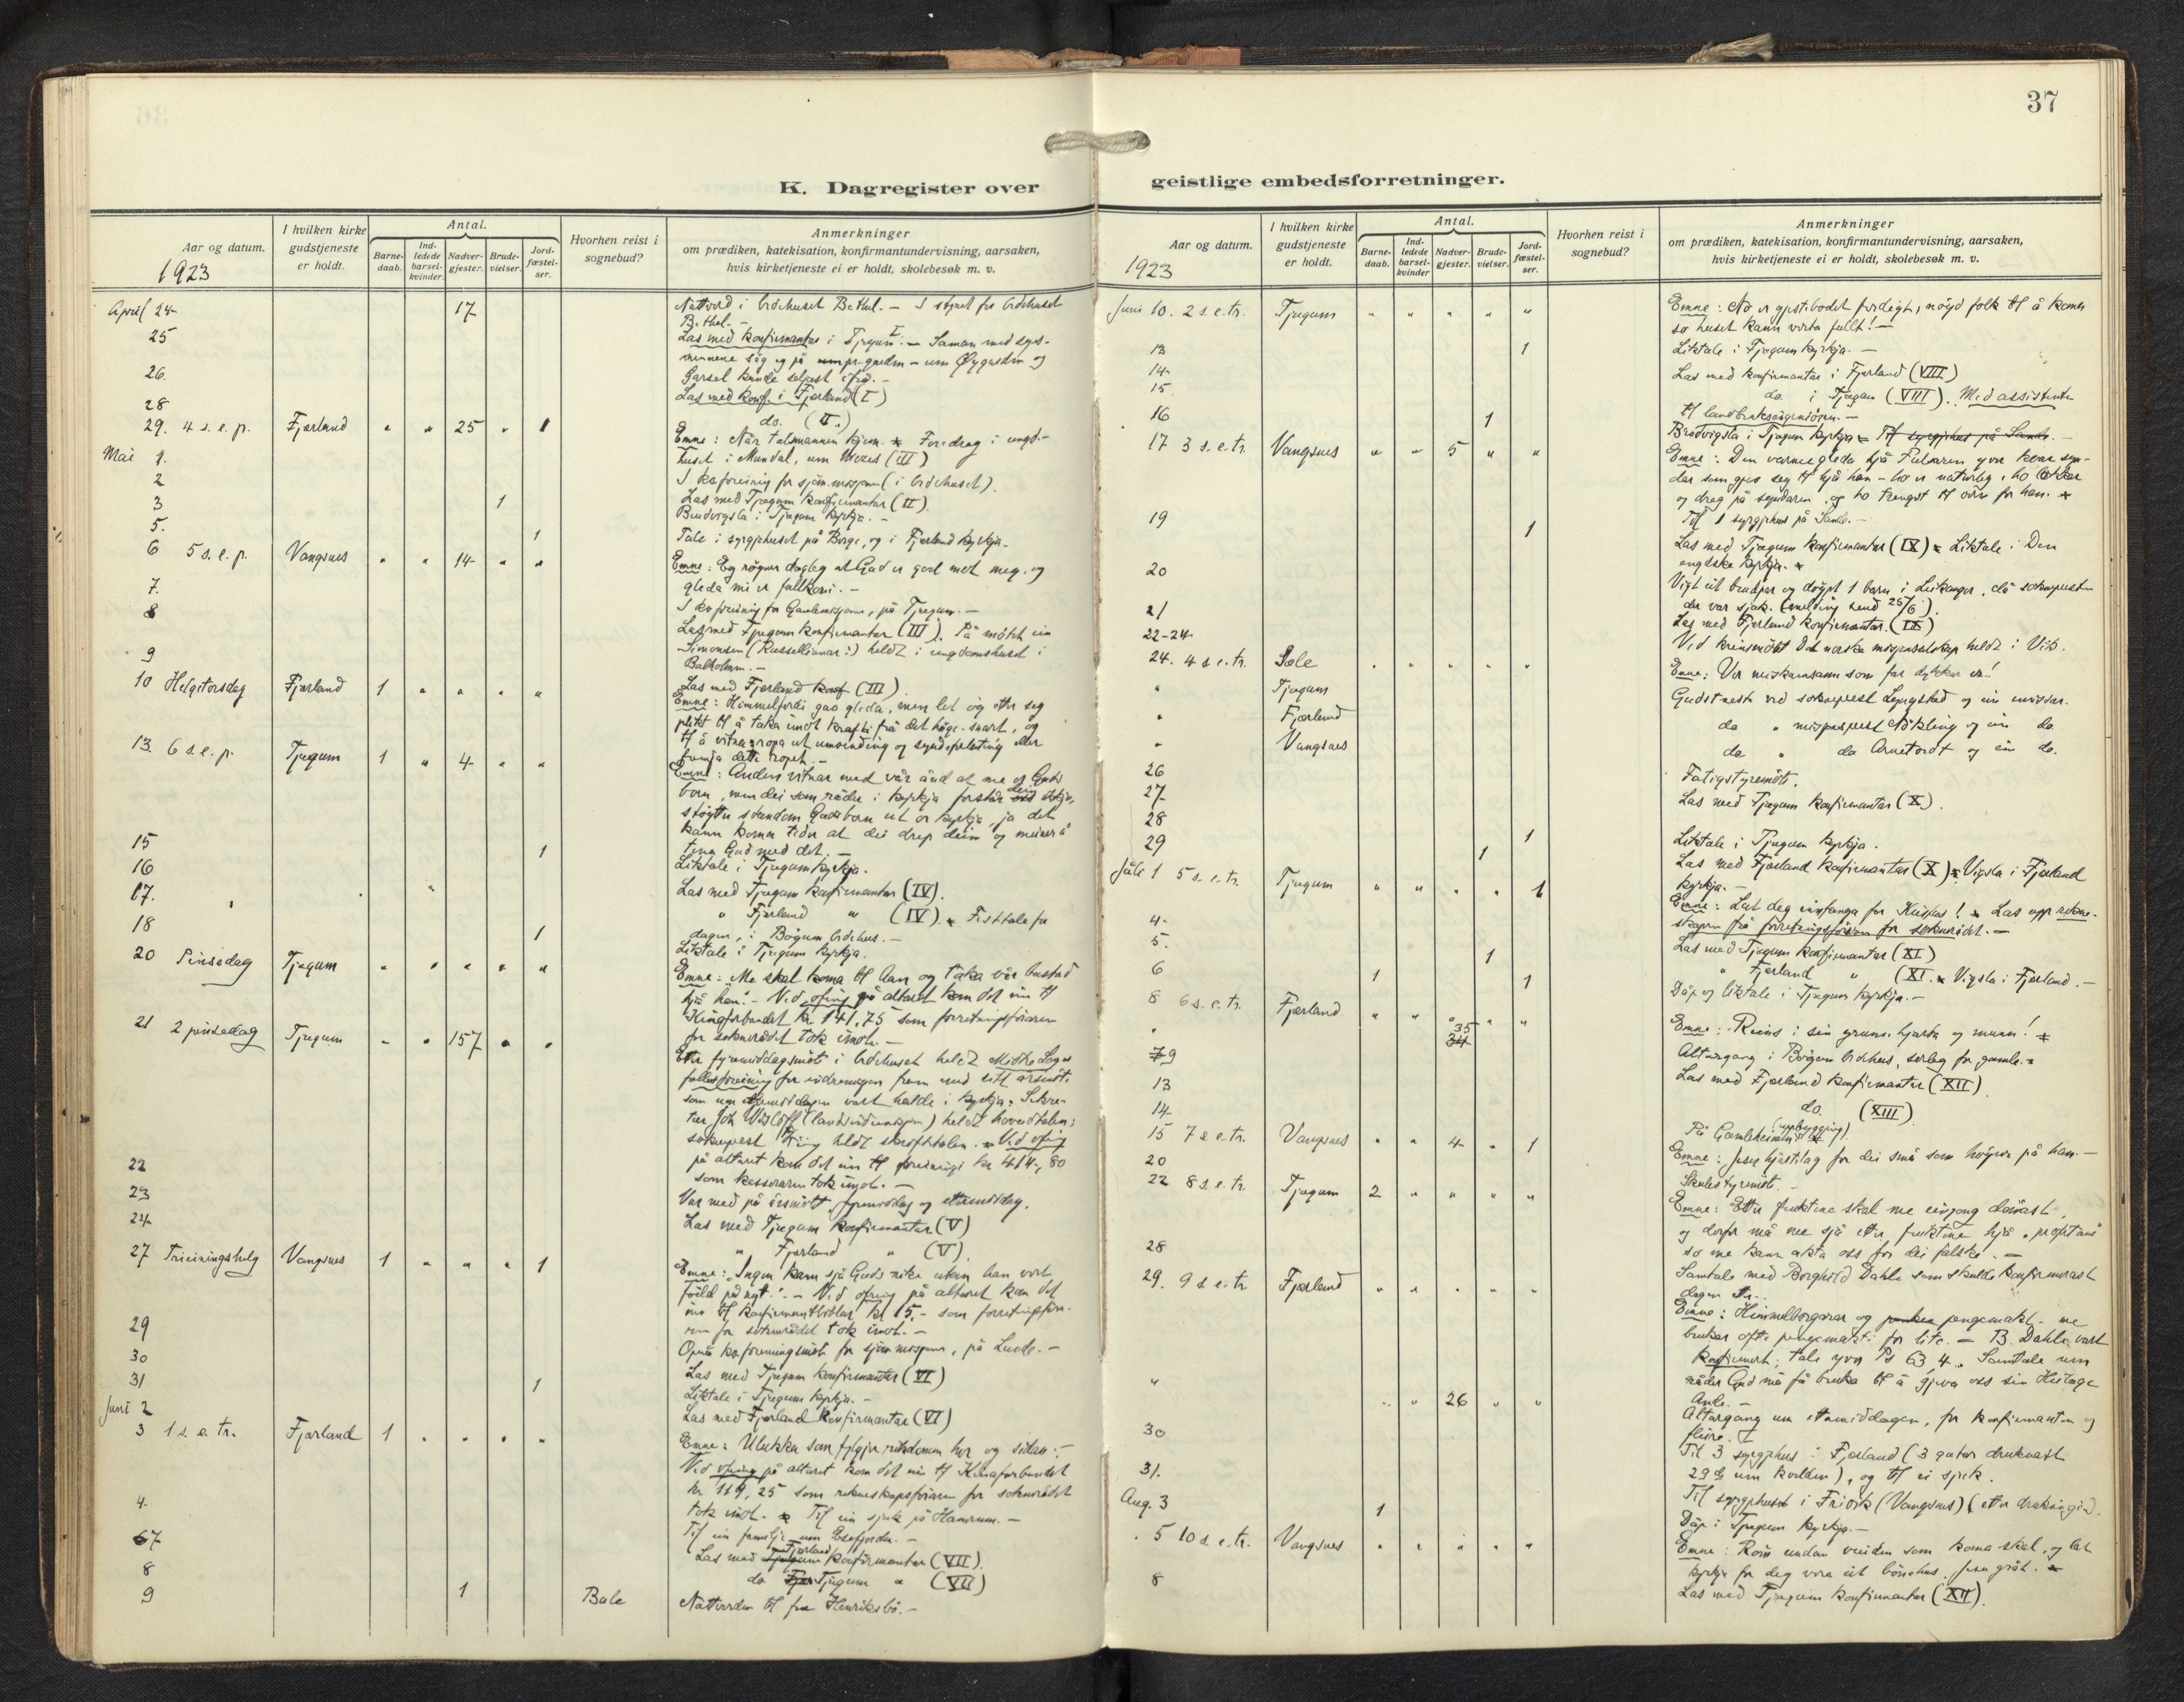 37
K. Dagregister over
Aar og datum.
1923
I hvilken kirke gudstjeneste er holdt.
Antal.
Barnedaab.
Indledede barselkvinder.
Nadvergjester.
Brudevielser.
Jordfæstelser.
Hvorhen reist i sognebud?
Anmerkninger
om prædiken, katekisation, konfirmantundervisning, aarsaken,
hvis kirketjeneste ei er holdt, skolebesøk m. v.
April 24 17 Nattverd i bedehuset Bethel. — I styret for bedehuset
Bethel. —
25 Las med konfirmantar i Tjugum I. — Saman med
26.
Las med konf. i Fjærland (I)
28 do. (II.)
29. 4 s. e. p. Fjærland " " 25 " 1 Emne: Når talsmannen kjem. Foredrag i ungd.-
huset i Mundal, um Moses (III)
Mai 1. I kvforeining for sjømannsmisjonen (i bedehuset).
2 Las med Tjugum konfirmantar (II).
3 1 Brudvigsla i Tjugum kyrkja. —
5. 1 Tale i syrgjehuset på Berge, og i Fjærland kyrkja.
6 5 s. e. p. Vangsnes " " 14 " " Emne: Eg røyner dagleg at Gud er god mot meg, og
gleda mi er fullkomi. —
7. på Tjugum. —
8 Las med Tjugum konfirmantar (III). På møtet ein
Simonsen heldt i ungdomshuset i
Balholm. —
9 Las med Fjærland konf (III)
10 Helgetorsdag Fjærland 1 " " " " Emne: Himmelferdi gav gleda, men let og etter seg
plikt til å taka imot krafti frå det høge - snart, og
til å vitna: ropa ut umvending og syndeforlating eller
fremja dette ropet. —
13. 6 s. e. p. Tjugum 1 " 4 " " Emne: Anden vitnar med vår ånd at me er Guds
born, men dei som råder i kyrkja forstår det ikkje,
støyter stundom Gudsborn ut or kyrkja, ja det
kann koma tider at dei drep deim og meiner å
tena Gud med det. —
15 1 Liktale i Tjugum kyrkja.
16 Las med Tjugum konfirmantar (IV).
17. " Fjærland " (IV). Festtale for
dagen, i Bøyum bedehus. —
18 1 Liktale i Tjugum kyrkja.
20 Pinsedag Tjugum " " " " " Emne: Me skal koma til han og taka vår bustad
hjå han. — Ved ofring på altaret kom det inn til
Kinaforbundet kr 141,75 som forretningsføraren
for soknerådet tok imot. —
21 2 pinsedag Tjugum " " 157 " " Etter fyremiddagsmøte i bedehuset heldt Midtre Sogns
fellesforeining for indremisjon frem med sitt årsmøte
som um ettermiddagen vart halde i kyrkja.
heldt hovedtalen;
sokneprest heldt skriftetalen. — Ved ofring
på altaret kom det inn til foreiningi kr 414,80
som kasseraren tok imot. —
22 Var med på årsmøtet, fyremiddag og ettermiddag.
23 Las med Tjugum konfirmantar (V)
24 " Fjærland " (V)
27 Treieiningshelg Vangsnes 1 " " " 1 Emne: "Ingen kann sjå Guds rike utan han vert
fødd på nytt." — Ved ofring på altaret kom det
inn til konfirmantbiblar kr 15,- som forretningsføra-
ren for soknerådet tok imot. —
29 på Lunde. —
30 Las med Tjugum konfirmantar (VI)
31 1 Liktale i Tjugum kyrkja. —
Juni 2 Las med Fjærland konfirmantar (VI)
3 1 s. e. tr. Fjærland 1 " " " " Emne: Ulukka som fylgjer rikdomen her og sidan. —
Ved ofring på altaret kom det inn til Kinaforbundet
kr 119,25 som rekneskapsføraren for soknerådet
tok imot. — Til ein sjuk på Hamrum. —
4. Til ein familje um Esefjorden. —
7 Las med Fjærland konfirmantar (VII).
8 do Tjugum " (VII)
9 1 Bale Nattverden til fru Henriksbø. —
geistlige embedsforretninger.
Aar og datum.
1923
I hvilken kirke gudstjeneste er holdt.
Antal.
Barnedaab.
Indledede barselkvinder
Nadvergjester.
Brudevielser.
Jordfæstelser.
Hvorhen reist i sognebud?
Anmerkninger
om prædiken, katekisation, konfirmantundervisning, aarsaken,
hvis kirketjeneste ei er holdt, skolebesøk m. v.
Juni 10. 2 s. e. tr. Tjugum " " " " " Emne: No er gjestebodet ferdigt, nøyd folk til å koma
so huset kann verta fullt! —
13 1 Liktale i Tjugum kyrkja. —
14 Las med konfirmantar i Fjærland (VIII)
15 do. i Tjugum (VIII). Med assistenten
til landbruksingeniøren. —
16 1 Brudvigsla i Tjugum kyrkja. Til syrgjehus på Sande. —
17 3 s. e. tr. Vangsnes " " 5 " " Emne: Den varme gleda hjå Frelsaren yver kvar syn-
dar som gjev seg til hjå han — ho er naturleg, ho lokkar
og dreg på syndaren, og ho trengst til vern for han.
Til 1 syrgjehus på Sande. —
19 1 Las med Tjugum konfirmantar (IX). Liktale i Den
engelske kyrkja.
20 Vigt eit brudpar og døypt 1 barn i Leikanger, då soknepresten
der var sjuk. (melding send 25/6).
21 Las med Fjærland konfirmantar. (IX)
22-24 Ved kretsmøtet Det norske misjonsselskap heldt i Vik.
24. 4 s. e. tr. Sæle " " " " " Emne: Ver miskunnsame som far dykkar er!
" Tjugum Gudstenest ved sokneprest og ein
" Fjærland do " misjonsprest og ein do.
" Vangsnes do " do og ein do.
26 Fatigstyremøte.
27 Las med Tjugum konfirmantar (X).
28 1 Liktale i Tjugum kyrkja.
29 1 Las med Fjærland konfirmantar (X). Vigsla i Fjærland
kyrkja. —
Juli 1 5 s. e. tr. Tjugum " " " " 1 Emne: Lat deg innfanga for Kristus! Las upp rekne-
skapen frå forretningsføraren for soknerådet. —
4. Las med Tjugum konfirmantar (XI)
5. 1 " Fjærland " (XI. Vigsla i Fjærland. —
6 1 1 Dåp og liktale i Tjugum kyrkja. —
8 6 s. e. tr. Fjærland " " " " " Emne: Reins i sin grunn: hjarta og munn!
" 35 34 Altargang i Bøyum bedehus, serleg for gamle.
9 Las med Fjærland konfirmantar (XII)
13 do. (XIII)
14 På Gamleheimen (uppbygging).
15 7 s. e. tr. Vangsnes " " 4 " 1 Emne: Jesu hjartelag for dei små som høyrer på han. —
20 Skulestyremøte. —
22 8 s. e. tr. Tjugum 2 " " " " Emne: Etter fruktene skal me eingong dømast,
og derfor må me sjå etter fruktene hjå "profetane"
so me kann akta oss for dei falske. —
28 Samtale med Borghild Dahle som skulde konfirmerast
dagen
29. 9 s. e. tr. Fjærland " " " " " Emne: Himmelborgarar og pengemakt - me
brukar ofte pengemakti for lite. — B. Dahle vart
konfirmert; tale yver Ps 63 4. Samtale um
råder Gud må få bruka til å gjeva oss sin Heilage
Ande. —
" " " 26 " " Altargang um ettermiddagen, for konfirmanten og
fleire. —
30 Til 3 syrgjehus i Fjærland (3 gutar druknast
29de um kvelden), og til ei sjuk.
31. Til syrgjehuset i (Vangsnes) (etter
Aug. 3 1 Dåp i Tjugum kyrkja. —
5 10 s. e. tr. Vangsnes " " " " " Emne: Røm undan vreiden som koma skal, og lat
kyrkja for deg vera eit bønehus. Jesu gråt.
8 Las med Tjugum konfirmantar (XII).